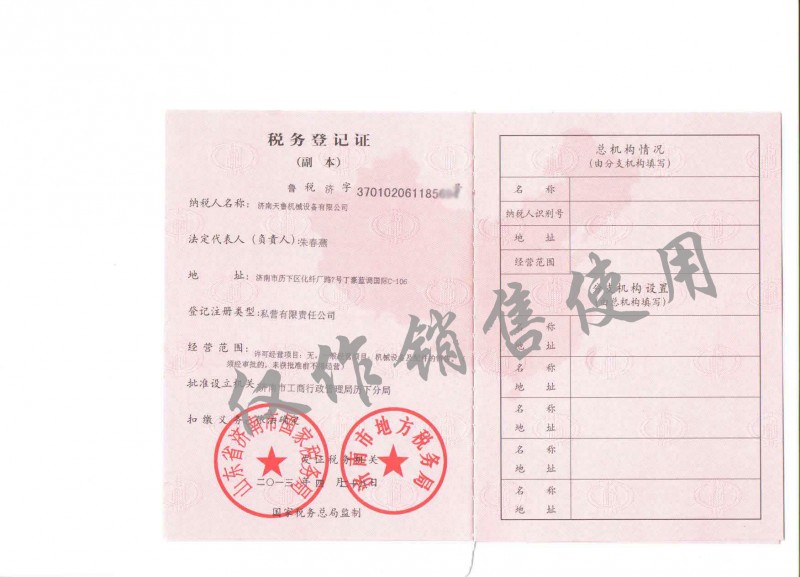 税务登记证
(副 本)
鲁 税 济 字 37010206118565
纳税人名称: 济南天鲁机械设备有限公司
法定代表人(负责人): 朱春燕
地 址: 济南市历下区化纤厂路7号丁豪蓝调国际C-106
登记注册类型: 私营有限责任公司
经营范围: 许可经营项目: 无。一般经营项目: 机械设备
须经审批的, 未获批准前不得经营)
批准设立机关 济南市工商行政管理局历下分局
扣缴义务 依法确定
山东省济南市国家税务局
济南市地方税务局
发证税务机关
二〇一三年四月十 日
国家税务总局监制
仅作销售使用
总机构情况
(由分支机构填写)
名 称
纳税人识别号
地 址
经营范围
分支机构设置
(由总机构填写)
名 称
地 址
名 称
地 址
名 称
地 址
名 称
地 址
名 称
地 址